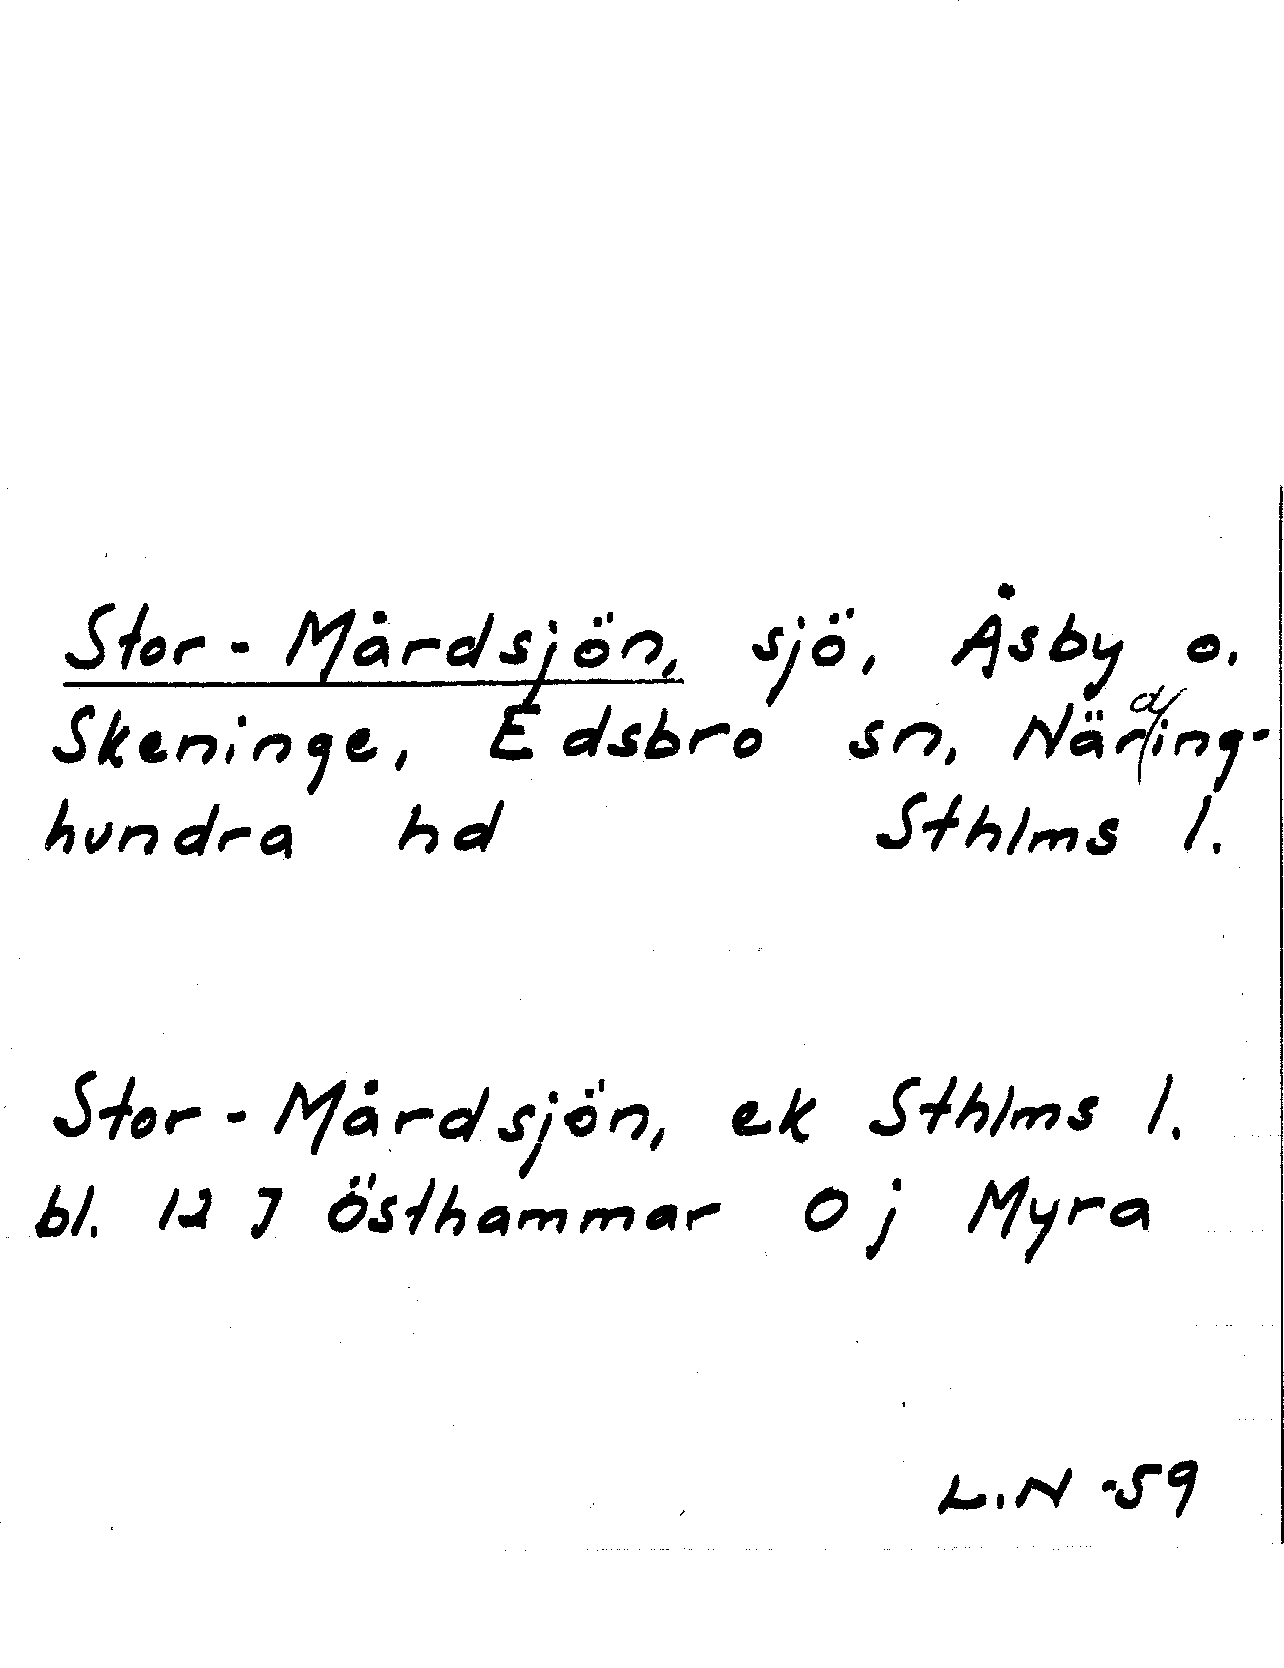 Stor-Mårdsjön, sjö, Åsby o.
Skeninge, Edsbro sn, Närding-
hundra hd Sthlms l.
Stor-Mårdsjön, ek Sthlms l.
bl. 12 J Östhammar 0 j Myra
L.N -59